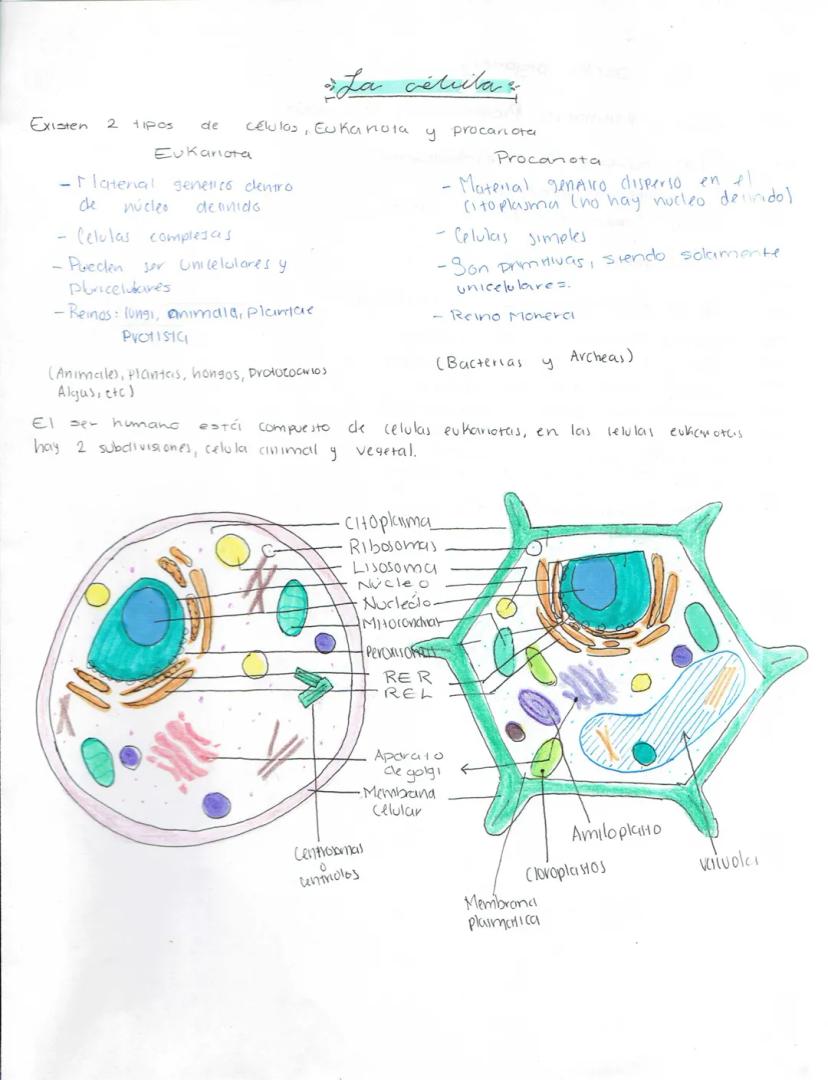 La célula
Existen 2 tipos de células, Eukariota y procariota
Eukariota
- Material genetico dentro
de núcleo definido
- Celulas complejas
- Pueden ser Unicelulares y
pluricelulares
- Reinos: fungi, animalia, plantae
Protista
(Animales, plantas, hongos, Protozoarios
Algas, etc)
Procariota
- Material genetico disperso en el
citoplasma (no hay nucleo definido)
- Celulas simples
- Son primitivas, siendo solamente
unicelulares.
- Reino Monera
(Bacterias y Archeas)
El ser humano está compuesto de celulas eukariotas, en las celulas eukariotas
hay 2 subdivisiones, celula animal y vegetal.
Citoplasma
Ribosomas
Lisosoma
Núcleo
Nucleólo
Mitocondrias
Peroxisomas
RER
REL
Aparato
de golgi
Membrana
Celular
Centrosomas
o
centriolos
Amiloplasto
Cloroplastos
Vacuola
Membrana
plasmatica